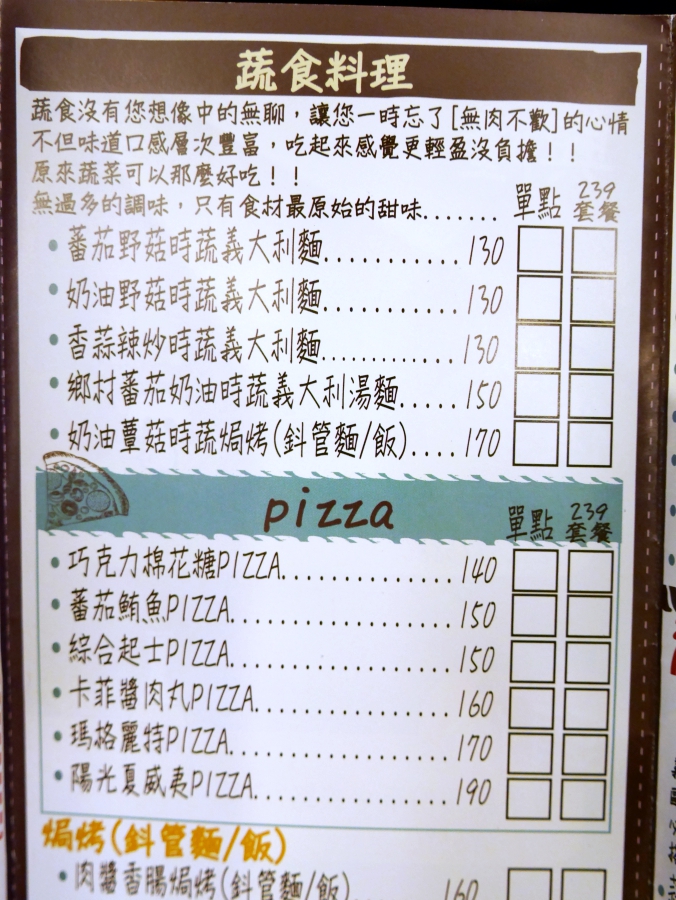 蔬食料理
蔬食沒有您想像中的無聊，讓您一時忘了[無肉不歡]的心情
不但味道口感層次豐富，吃起來感覺更輕盈沒負擔！！
原來蔬菜可以那麼好吃！！
無過多的調味，只有食材最原始的甜味....... 單點 239套餐
• 蕃茄野菇時蔬義大利麵............130
• 奶油野菇時蔬義大利麵............130
• 香蒜辣炒時蔬義大利麵............130
• 鄉村蕃茄奶油時蔬義大利湯麵.....150
• 奶油蕈菇時蔬焗烤(斜管麵/飯)....170
pizza 單點 239套餐
• 巧克力棉花糖PIZZA...............140
• 蕃茄鮪魚PIZZA...................150
• 綜合起士PIZZA...................150
• 卡菲醬肉丸PIZZA.................160
• 瑪格麗特PIZZA...................170
• 陽光夏威夷PIZZA.................190
焗烤(斜管麵/飯)
• 肉醬香腸焗烤(斜管麵/飯)........160